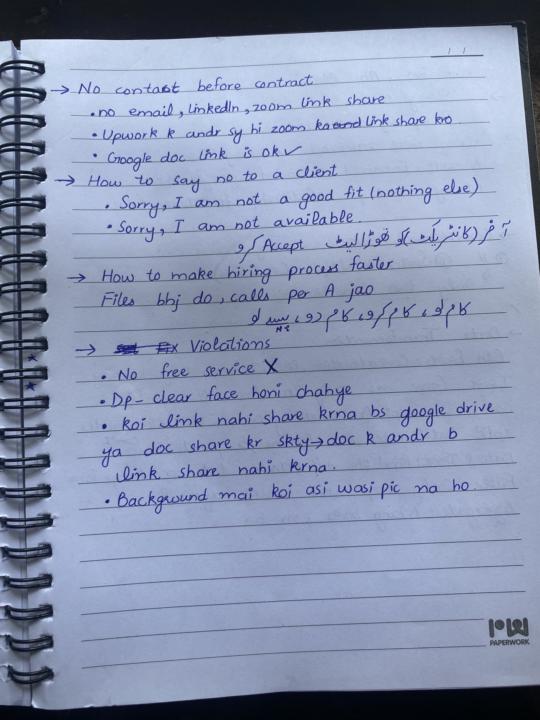 → No contact before contract
• no email, linkedIn, zoom link share
• Upwork k andr sy hi zoom ka link share kro
• Google doc link is ok ✓
→ How to say no to a client
• Sorry, I am not a good fit (nothing else)
• Sorry, I am not available
آفر (کانٹریکٹ) کو تھوڑا لیٹ Accept کرو
→ How to make hiring process faster
Files bhj do, calls per A jao
کام لو، کام کرو، کام دو، پیسے لو
→ Violations
• No free service X
• Dp - clear face honi chahye
• Koi link nahi share krna bs google drive
ya doc share kr skty → doc k andr b
link share nahi krna.
• Background mai koi asi wasi pic na ho
PW
PAPERWORK